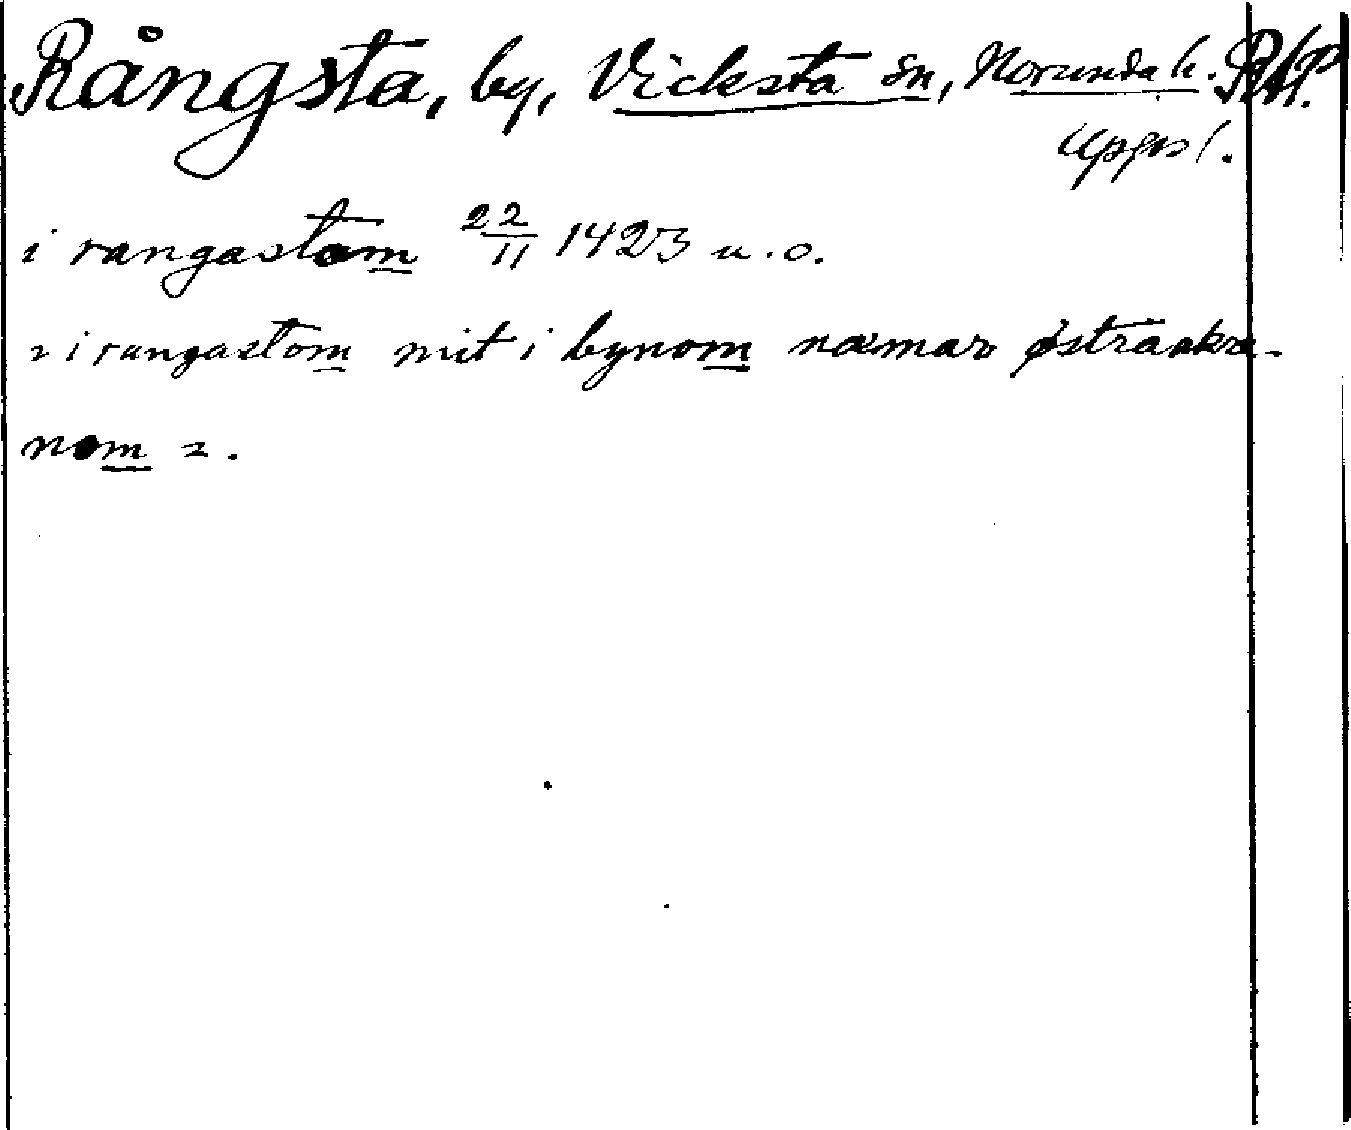 Rångsta, by, Vicksta sn, Norunda h. RAp.
Upps l.
i rangastom 22/11 1423 u. o.
2 i rangastom mit i bynom næmar østra akra-
nom 2.